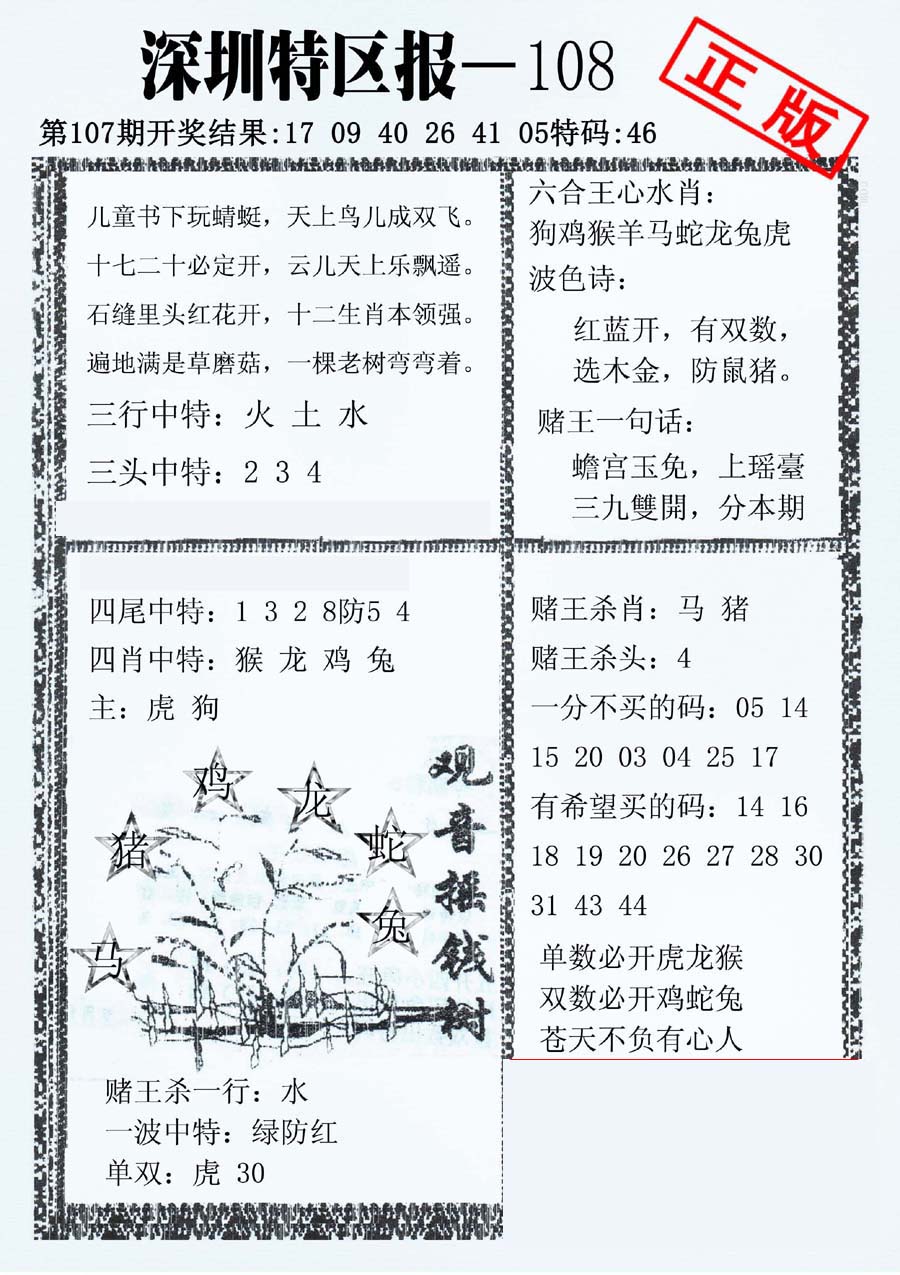 深圳特区报—108
正版
第107期开奖结果:17 09 40 26 41 05特码:46
儿童书下玩蜻蜓，天上鸟儿成双飞。
十七二十必定开，云儿天上乐飘遥。
石缝里头红花开，十二生肖本领强。
遍地满是草磨菇，一棵老树弯弯着。
三行中特：火 土 水
三头中特：2 3 4
六合王心水肖：
狗鸡猴羊马蛇龙兔虎
波色诗：
红蓝开，有双数，
选木金，防鼠猪。
赌王一句话：
蟾宫玉免，上瑶臺
三九雙開，分本期
四尾中特：1 3 2 8防5 4
四肖中特：猴 龙 鸡 兔
主：虎 狗
鸡
龙
猪
蛇
兔
马
观音摇钱树
赌王杀一行：水
一波中特：绿防红
单双：虎 30
赌王杀肖：马 猪
赌王杀头：4
一分不买的码：05 14
15 20 03 04 25 17
有希望买的码：14 16
18 19 20 26 27 28 30
31 43 44
单数必开虎龙猴
双数必开鸡蛇兔
苍天不负有心人